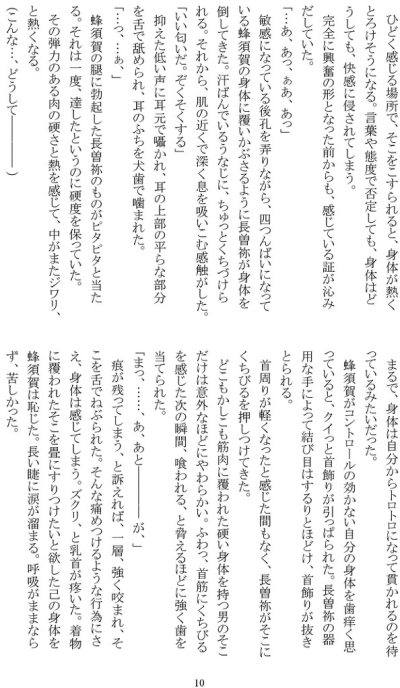 ひどく感じる場所で、そこをこすられると、身体が熱く
とろけそうになる。言葉や態度で否定しても、身体はど
うしても、快感に侵されてしまう。
完全に興奮の形となった前からも、感じている証が沁み
だしていた。
「…あ、あっ、ぁあ、あっ」
敏感になっている後孔を弄りながら、四つんばいになって
いる蜂須賀の身体に覆いかぶさるように長曽祢が身体を
倒してきた。汗ばんでいるうなじに、ちゅっとくちづけら
れる。それから、肌の近くで深く息を吸いこむ感触がした。
「いい匂いだ。ぞくぞくする」
抑えた低い声に耳元で囁かれ、耳の上部の平らな部分
を舌で舐められ、耳のふちを犬歯で噛まれた。
「…っ、…ぁ、」
蜂須賀の腿に勃起した長曽祢のものがピタピタと当た
る。それは一度、達したというのに硬度を保っていた。
その弾力のある肉の硬さと熱を感じて、中がまたジワリ、
と熱くなる。
(こんな…、どうして――――)
まるで、身体は自分からトロトロになって貫かれるのを待
っているみたいだった。
蜂須賀がコントロールの効かない自分の身体を歯痒く思
っていると、クイっと首飾りが引っぱられた。長曽祢の器
用な手によって結び目はするりとほどけ、首飾りが抜き
とられる。
首周りが軽くなったと感じた間もなく、長曽祢がそこに
くちびるを押しつけてきた。
どこもかしこも筋肉に覆われた硬い身体を持つ男のそこ
だけは意外なほどにやわらかい。ふわっ、首筋にくちびる
を感じた次の瞬間、喰われる、と脅えるほどに強く歯を
当てられた。
「まっ、……、あ、あと―――が、」
痕が残ってしまう、と訴えれば、一層、強く咬まれ、そ
こを舌でねぶられた。そんな痛めつけるような行為にさ
え、身体は感じてしまう。ズクリ、と乳首が疼いた。着物
に覆われたそこを畳にすりつけたいと欲した己の身体を
蜂須賀は恥じた。長い睫に涙が溜まる。呼吸がままなら
ず、苦しかった。
10